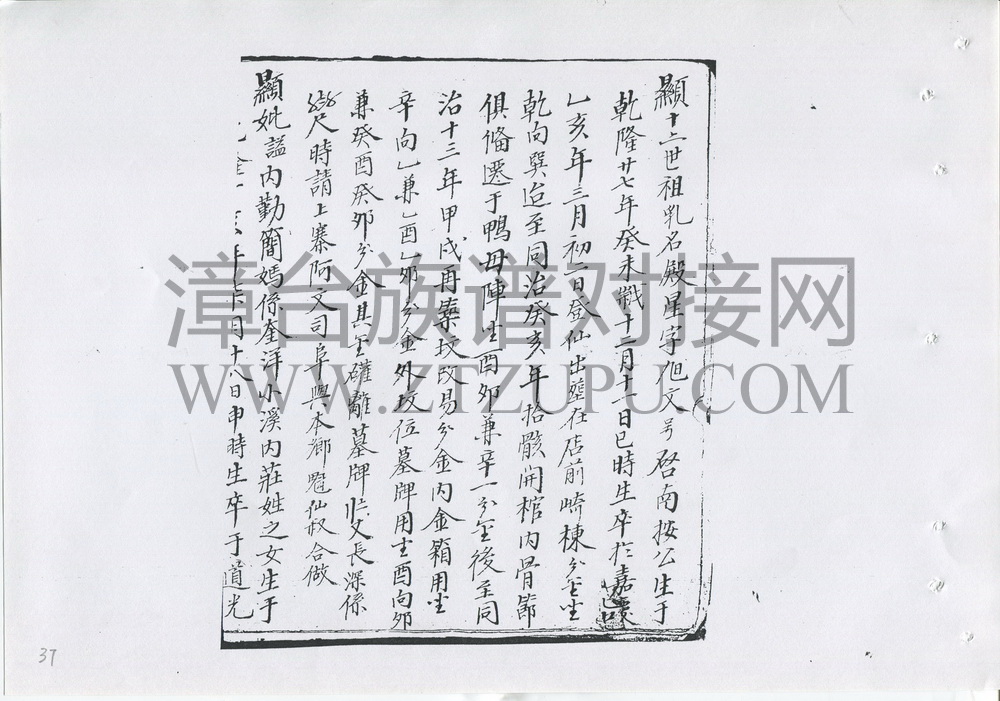 顯十二世祖乳名殿星字旭文号啓南按公生于
乾隆廿七年癸未歲十二月十一日巳時生卒於嘉慶
乙亥年三月初一日登仙出塟在店前崎棟分金坐
乾向巽迨至同治癸亥年拾骸開棺内骨節
俱備遷于鴨母陣坐酉卯兼辛一分金後至同
治十三年甲戌再築坟改易分金内金箱用坐
辛向乙兼乙酉乙卯分金外坟位墓牌用坐酉向卯
兼癸酉癸卯分金其金確離墓牌 丈長深係
尺時請上寨阿文司阜與本鄉 仙叔合做
顯妣諡内勤簡媽係奎洋小溪内莊姓之女生于
年 月十八日申時生卒于道光
漳台族谱对接网
WWW.ZTZUPU.COM
37